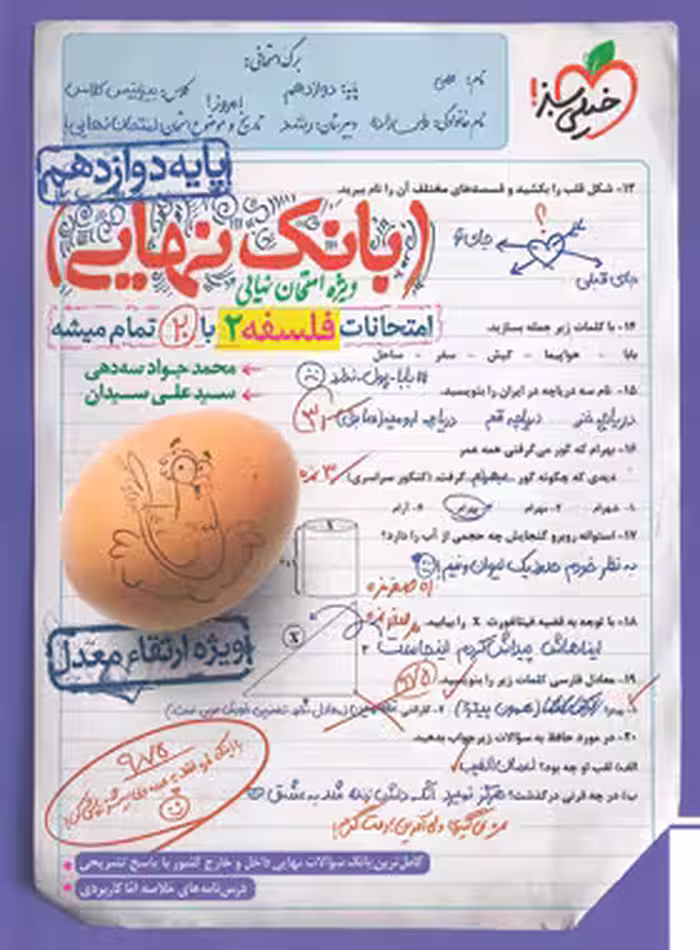 خیلی سبز!
برگ امتحانی:
نام:
پایه: دوازدهم
نام خانوادگی:
امروز!
تاریخ و موضوع امتحان: امتحان نهایی!
پایه دوازدهم
(بانک نهایی)
ویژه امتحان نهایی
امتحانات فلسفه ۲ با ۲۰ تمام میشه
محمد جواد سه‌دهی
سید علی سیدان
۱۳- شکل قلب را بکشید و قسمت‌های مختلف آن را نام ببرید.
؟
جای تو
جای قبلی
۱۴- با کلمات زیر جمله بسازید.
بابا - هواپیما - کیش - سفر - ساحل
بابا پول نداد
۱۵- نام سه دریاچه در ایران را بنویسید.
دریاچه خزر دریاچه قم دریاچه ارومیه
۱۶- بهرام که گور می‌گرفتی همه عمر
دیدی که چگونه گور بهرام گرفت. (کنکور سراسری)
۱- شهرام ۲- مهرام ۳- بهرام ۴- آرام
۱۷- استوانه روبرو گنجایش چه حجمی از آب را دارد؟
به نظر خودم حدود یک لیوان و نیم!
۱۸- با توجه به قضیه فیثاغورث X را بیابید.
ایناهاش پیداش کردم اینجاست
X
۱۹- معادل فارسی کلمات زیر را بنویسید.
۲۰- در مورد حافظ به سؤالات زیر جواب بدهید.
الف) لقب او چه بود؟ لسان‌الغیب
ب) در چه قرنی درگذشت؟ هرگز نمیرد آنکه دلش زنده شد به عشق
ویژه ارتقاء معدل
۹/۷۵
کامل‌ترین بانک سؤالات نهایی داخل و خارج کشور با پاسخ تشریحی
درس‌نامه‌های خلاصه اما کاربردی